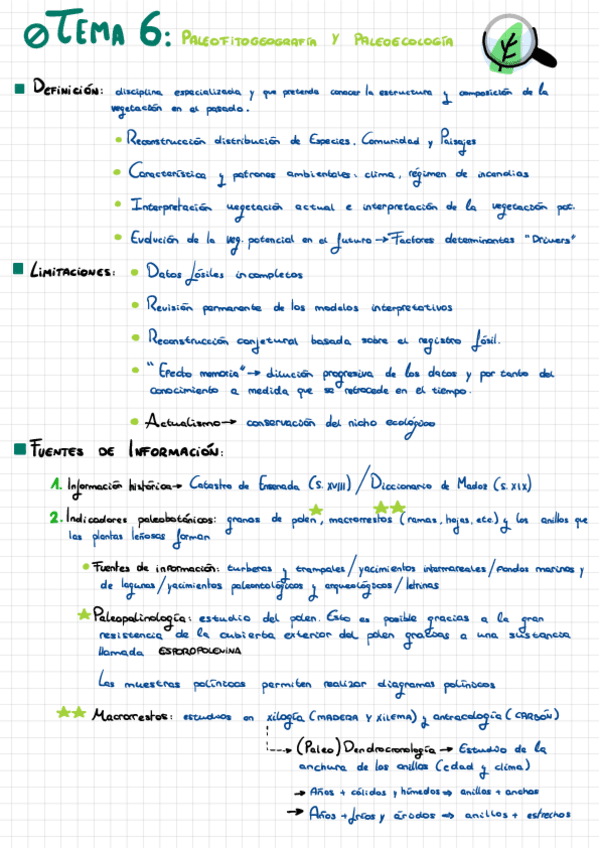 TEMA 6: PALEOFITOGEOGRAFÍA Y PALEOECOLOGÍA
DEFINICIÓN: disciplina especializada y que pretende conocer la estructura y composición de la
vegetación en el pasado.
• Reconstrucción distribución de Especies, Comunidad y Paisajes
• Característica y patrones ambientales: clima, régimen de incendios
• Interpretación vegetación actual e interpretación de la vegetación pot.
• Evolución de la veg. potencial en el futuro → Factores determinantes "Drivers"
LIMITACIONES: • Datos fósiles incompletos
• Revisión permanente de los modelos interpretativos
• Reconstrucción conjetural basada sobre el registro fósil.
• "Efecto memoria" → dilución progresiva de los datos y por tanto del
conocimiento a medida que se retrocede en el tiempo.
• Actualismo → conservación del nicho ecológico
FUENTES DE INFORMACIÓN:
1. Información histórica → Catastro de Ensenada (S. XVIII) / Diccionario de Madoz (S. XIX)
2. Indicadores paleobotánicos: granos de polen, macrorrestos (ramas, hojas, etc) y los anillos que
las plantas leñosas forman
• Fuentes de información: turberas y trampales / yacimientos intermareales / fondos marinos y
de lagunas / yacimientos paleontológicos y arqueológicos / letrinas
★ Paleopalinología: estudio del polen. Esto es posible gracias a la gran
resistencia de la cubierta exterior del polen gracias a una sustancia
llamada ESPOROPOLENINA
Las muestras polínicas permiten realizar diagramas polínicos
★★ Macrorrestos: estudios en xilogía (MADERA Y XILEMA) y antracología (CARBÓN)
(Paleo) Dendrocronología → Estudio de la
anchura de los anillos (edad y clima)
→ Años + cálidos y húmedos ⇒ anillos + anchos
→ Años + fríos y áridos ⇒ anillos + estrechos